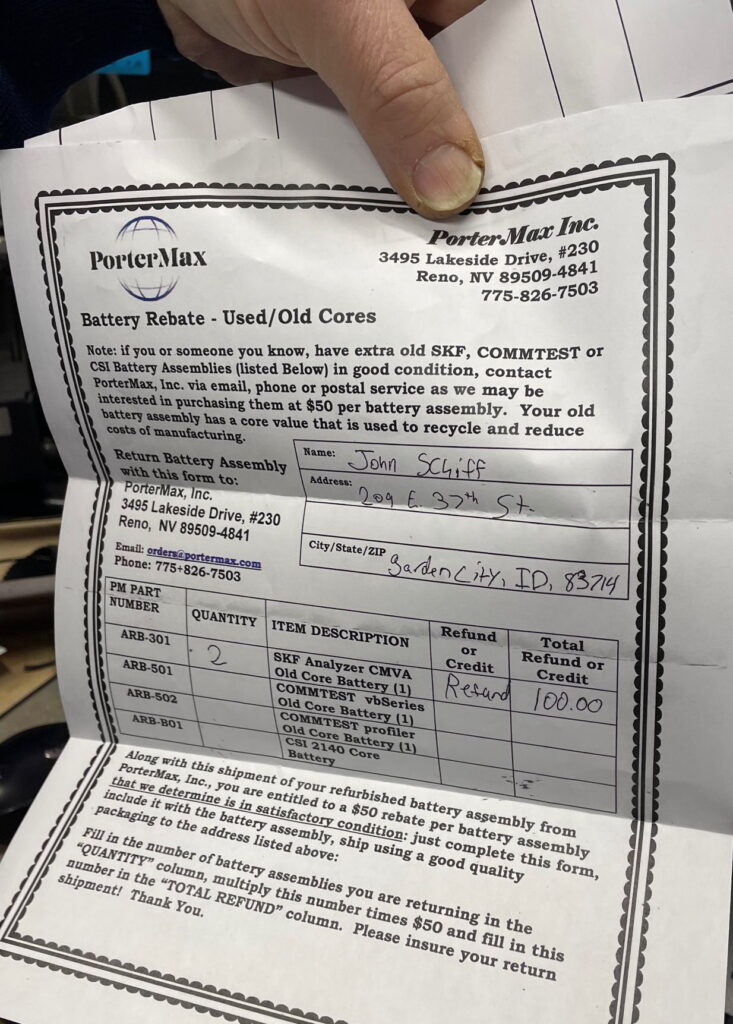 PorterMax
PorterMax Inc.
3495 Lakeside Drive, #230
Reno, NV 89509-4841
775-826-7503
Battery Rebate - Used/Old Cores
Note: if you or someone you know, have extra old SKF, COMMTEST or
CSI Battery Assemblies (listed Below) in good condition, contact
PorterMax, Inc. via email, phone or postal service as we may be
interested in purchasing them at $50 per battery assembly. Your old
battery assembly has a core value that is used to recycle and reduce
costs of manufacturing.
Return Battery Assembly
with this form to:
PorterMax, Inc.
3495 Lakeside Drive, #230
Reno, NV 89509-4841
Email: orders@portermax.com
Phone: 775+826-7503
Name: John Schiff
Address: 209 E. 37th St.
City/State/ZIP Garden City, ID, 83714
PM PART NUMBER QUANTITY ITEM DESCRIPTION Refund or Credit Total Refund or Credit
ARB-301 2 SKF Analyzer CMVA Old Core Battery (1) Refund 100.00
ARB-501 COMMTEST vbSeries Old Core Battery (1)
ARB-502 COMMTEST profiler Old Core Battery (1)
ARB-B01 CSI 2140 Core Battery
Along with this shipment of your refurbished battery assembly from
PorterMax, Inc., you are entitled to a $50 rebate per battery assembly
that we determine is in satisfactory condition: just complete this form,
include it with the battery assembly, ship using a good quality
packaging to the address listed above:
Fill in the number of battery assemblies you are returning in the
"QUANTITY" column, multiply this number times $50 and fill in this
number in the "TOTAL REFUND" column. Please insure your return
shipment! Thank You.